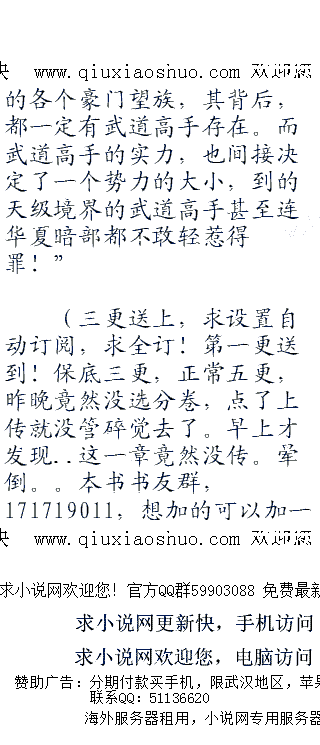 快 www.qiuxiaoshuo.com 欢迎您
的各个豪门望族，其背后，
都一定有武道高手存在。而
武道高手的实力，也间接决
定了一个势力的大小，到的
天级境界的武道高手甚至连
华夏暗部都不敢轻惹得
罪！”
（三更送上，求设置自
动订阅，求全订！第一更送
到！保底三更，正常五更，
昨晚竟然没选分卷，点了上
传就没管碎觉去了。早上才
发现..这一章竟然没传。晕
倒。。本书书友群，
171719011，想加的可以加一
快 www.qiuxiaoshuo.com 欢迎您
求小说网欢迎您！官方QQ群59903088 免费最新
求小说网更新快，手机访问
求小说网欢迎您，电脑访问
赞助广告：分期付款买手机，限武汉地区，苹果
联系QQ：51136620
海外服务器租用，小说网专用服务器